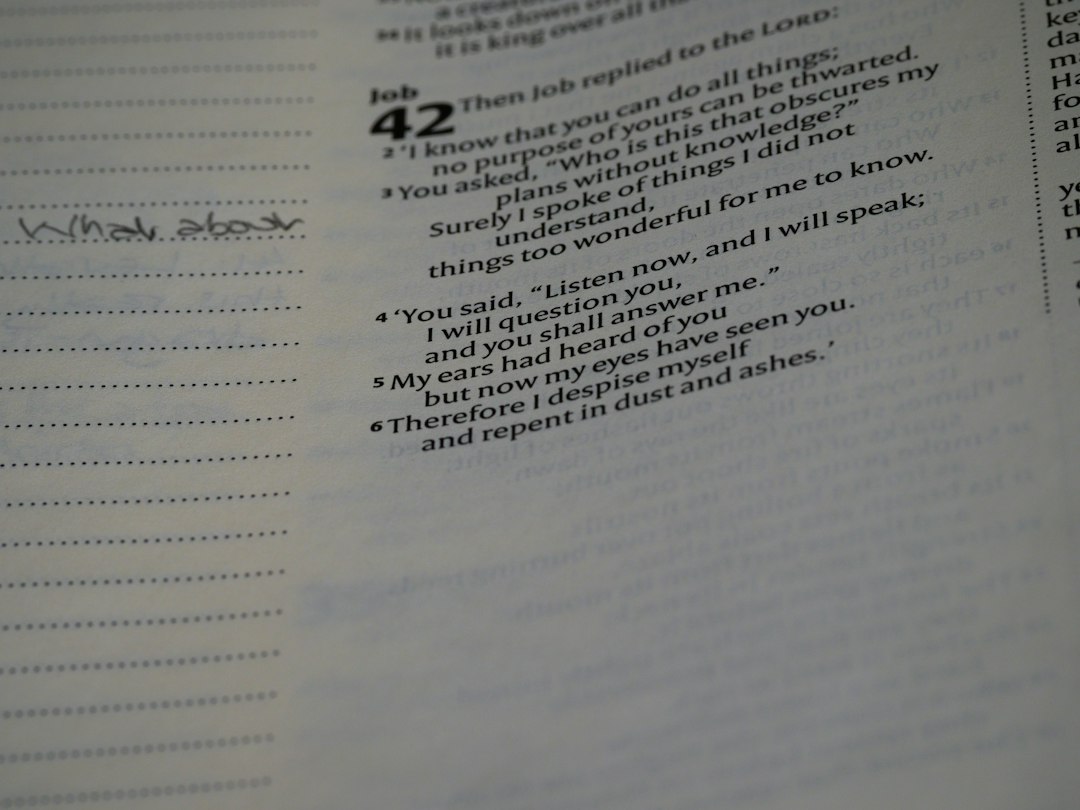 What about
a creature
It looks down on
it is king over all
Job
42 Then Job replied to the LORD:
2 ‘I know that you can do all things;
no purpose of yours can be thwarted.
3 You asked, “Who is this that obscures my
plans without knowledge?”
Surely I spoke of things I did not
understand,
things too wonderful for me to know.
4 ‘You said, “Listen now, and I will speak;
I will question you,
and you shall answer me.”
5 My ears had heard of you
but now my eyes have seen you.
6 Therefore I despise myself
and repent in dust and ashes.’